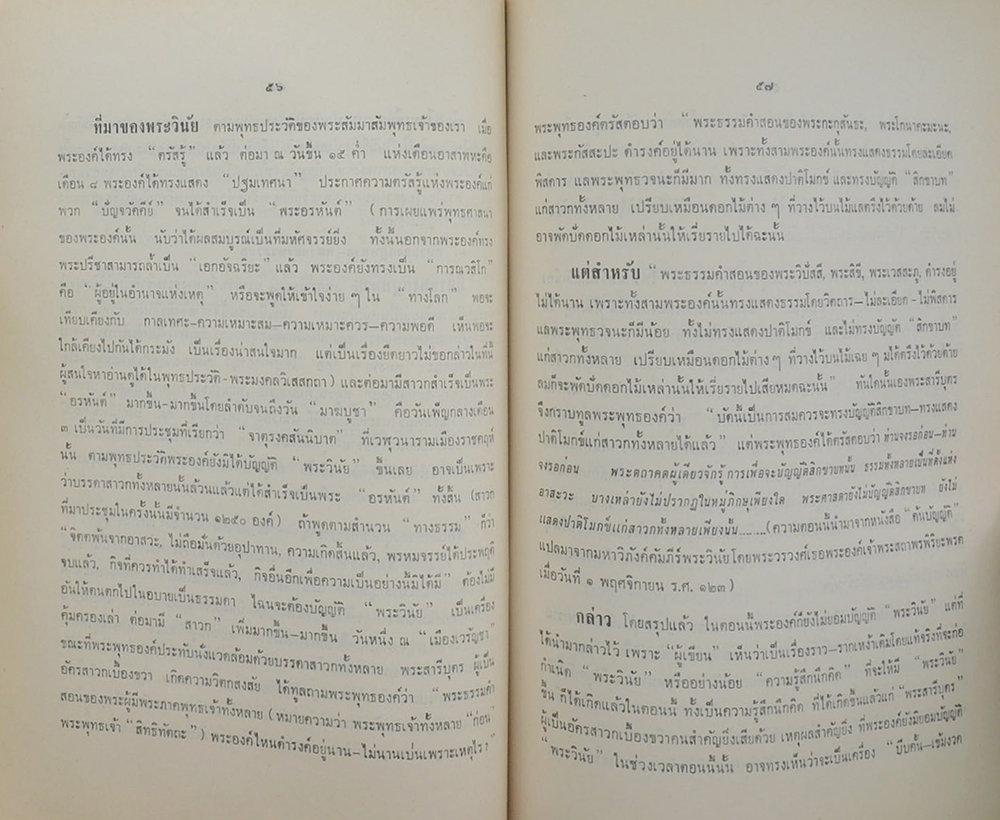 ๕๖
ที่มาของพระวินัย ตามพุทธประวัติของพระสัมมาสัมพุทธเจ้าของเรา เมื่อ
พระองค์ได้ทรง “ตรัสรู้” แล้ว ต่อมา ณ วันขึ้น ๑๕ ค่ำ แห่งเดือนอาสาฬหะคือ
เดือน ๘ พระองค์ได้ทรงแสดง “ปฐมเทศนา” ประกาศความตรัสรู้แห่งพระองค์แก่
พวก “บัญจวัคคีย์” จนได้สำเร็จเป็น “พระอรหันต์” (การเผยแพร่พุทธศาสนา
ของพระองค์นั้น นับว่าได้ผลสมบูรณ์เป็นที่มหัศจรรย์ยิ่ง ทั้งนี้นอกจากพระองค์ทรง
พระปรีชาสามารถล้ำเป็น “เอกอัจฉริยะ” แล้ว พระองค์ยังทรงเป็น “การณวสิโก”
คือ “ผู้อยู่ในอำนาจแห่งเหตุ” หรือจะพูดให้เข้าใจง่าย ๆ ใน “ทางโลก” พอจะ
เทียบเคียงกับ กาลเทศะ-ความเหมาะสม—ความเหมาะควร—ความพอดี เห็นพอจะ
ใกล้เคียงไปกันได้กระมัง เป็นเรื่องน่าสนใจมาก แต่เป็นเรื่องยืดยาวไม่ขอกล่าวในที่นี้
ผู้สนใจหาอ่านดูได้ในพุทธประวัติ-พระมงคลวิเสสกถา) และต่อมามีสาวกสำเร็จเป็นพระ
“อรหันต์” มากขึ้น-มากขึ้นโดยลำดับจนถึงวัน “มาฆบูชา” คือวันเพ็ญกลางเดือน
๓ เป็นวันที่มีการประชุมที่เรียกว่า “จาตุรงคสันนิบาต” ที่เวฬุวนารามเมืองราชคฤห์
นั้น ตามพุทธประวัติพระองค์ยังมิได้บัญญัติ “พระวินัย” ขึ้นเลย อาจเป็นเพราะ
ว่าบรรดาสาวกทั้งหลายนั้นล้วนแล้วแต่ได้สำเร็จเป็นพระ “อรหันต์” ทั้งสิ้น (สาวก
ที่มาประชุมในครั้งนั้นมีจำนวน ๑๒๕๐ องค์) ถ้าพูดตามสำนวน “ทางธรรม” ก็ว่า
“จิตตพ้นจากอาสวะ, ไม่ถือมั่นด้วยอุปาทาน, ความเกิดสิ้นแล้ว, พรหมจรรย์ได้ประพฤติ
จบแล้ว, กิจที่ควรทำได้ทำเสร็จแล้ว, กิจอื่นอีกเพื่อความเป็นอย่างนี้มิได้มี” ต้องไม่มี
อันให้ตนตกไปในอบายเป็นธรรมดา ไฉนจะต้องบัญญัติ “พระวินัย” เป็นเครื่อง
คุ้มครองเล่า ต่อมามี “สาวก” เพิ่มมากขึ้น—มากขึ้น วันหนึ่ง ณ “เมืองเวรัญชา”
ขณะที่พระพุทธองค์ประทับนั่งแวดล้อมด้วยบรรดาสาวกทั้งหลาย พระสารีบุตร ผู้เป็น
อัครสาวกเบื้องขวา เกิดความวิตกสงสัย ได้ทูลถามพระพุทธองค์ว่า “พระธรรมคำ
สอนของพระผู้มีพระภาคพุทธเจ้าทั้งหลาย (หมายความว่า พระพุทธเจ้าทั้งหลาย “ก่อน”
พระพุทธเจ้า “สิทธิทัตถะ”) พระองค์ไหนดำรงค์อยู่นาน—ไม่นานเป็นเพราะเหตุไร?”
๕๗
พระพุทธองค์ตรัสตอบว่า “พระธรรมคำสอนของพระกะกุสันธะ, พระโกนาคะมะนะ,
และพระกัสสะปะ ดำรงค์อยู่ได้นาน เพราะทั้งสามพระองค์นั้นทรงแสดงธรรมโดยละเอียด
พิสดาร แลพระพุทธวจนะก็มีมาก ทั้งทรงแสดงปาติโมกข์ และทรงบัญญัติ “สิกขาบท”
แก่สาวกทั้งหลาย เปรียบเหมือนดอกไม้ต่าง ๆ ที่วางไว้บนไม้แลตรึงไว้ด้วยด้าย ลมไม่
อาจพัดบัดดอกไม้เหล่านั้นให้เรี่ยรายไปได้ฉะนั้น
แต่สำหรับ “พระธรรมคำสอนของพระวิบัสสี, พระสิขี, พระเวสสะภู, ดำรงอยู่
ไม่ได้นาน เพราะทั้งสามพระองค์นั้นทรงแสดงธรรมโดยวิตถาร—ไม่ละเอียด-ไม่พิสดาร
แลพระพุทธวจนะก็มีน้อย ทั้งไม่ทรงแสดงปาติโมกข์ และไม่ทรงบัญญัติ “สิกขาบท”
แก่สาวกทั้งหลาย เปรียบเหมือนดอกไม้ต่างๆ ที่วางไว้บนไม้เฉย ๆ มิได้ตรึงไว้ด้วยด้าย
ลมก็จะพัดบัดดอกไม้เหล่านั้นให้เรี่ยรายไปเสียหมดฉะนั้น” ทันใดนั้นเองพระสารีบุตร
จึงกราบทูลพระพุทธองค์ว่า “บัดนี้เป็นการสมควรจะทรงบัญญัติสิกขาบท—ทรงแสดง
ปาติโมกข์แก่สาวกทั้งหลายได้แล้ว” แต่พระพุทธองค์ได้ตรัสตอบว่า ท่านจงรอก่อน—ท่าน
จงรอก่อน พระตถาคตผู้เดียวจักรู้ การเพื่อจะบัญญัติสิกขาบทนั้น ธรรมทั้งหลายเป็นที่ตั้งแห่ง
อาสะวะ บางเหล่ายังไม่ปรากฏในหมู่ภิกษุเพียงใด พระศาสดายังไม่บัญญัติสิกขาบท ยังไม่
แสดงปาติโมกข์แก่สาวกทั้งหลายเพียงนั้น........(ความตอนนี้นำมาจากหนังสือ “ต้นบัญญัติ”
แปลมาจากมหาวิภังค์คัมภีร์พระวินัยโดยพระวรวงศ์เธอพระองค์เจ้าพระสถาพรพิริยะพรต
เมื่อวันที่ ๑ พฤศจิกายน ร.ศ. ๑๒๓)
กล่าว โดยสรุปแล้ว ในตอนนี้พระองค์ก็ยังไม่ยอมบัญญัติ “พระวินัย” แต่ที่
ได้นำมากล่าวไว้ เพราะ “ผู้เขียน” เห็นว่าเป็นเรื่องราว—รากเหง้าเดิมโดยแท้จริงที่จะก่อ
กำเนิด “พระวินัย” หรืออย่างน้อย “ความรู้สึกนึกคิด” ที่จะให้มี “พระวินัย”
ขึ้น ก็ได้เกิดแล้วในตอนนี้ ทั้งเป็นความรู้สึกนึกคิด ที่ได้เกิดขึ้นแล้วแก่ “พระสารีบุตร”
ผู้เป็นอัครสาวกเบื้องขวาคนสำคัญยิ่งเสียด้วย เหตุผลสำคัญยิ่ง ที่พระองค์ยังมิยอมบัญญัติ
“พระวินัย” ในช่วงเวลาตอนนี้นั้น อาจทรงเห็นว่าจะเป็นเครื่อง “บีบคั้น—เข้มงวด